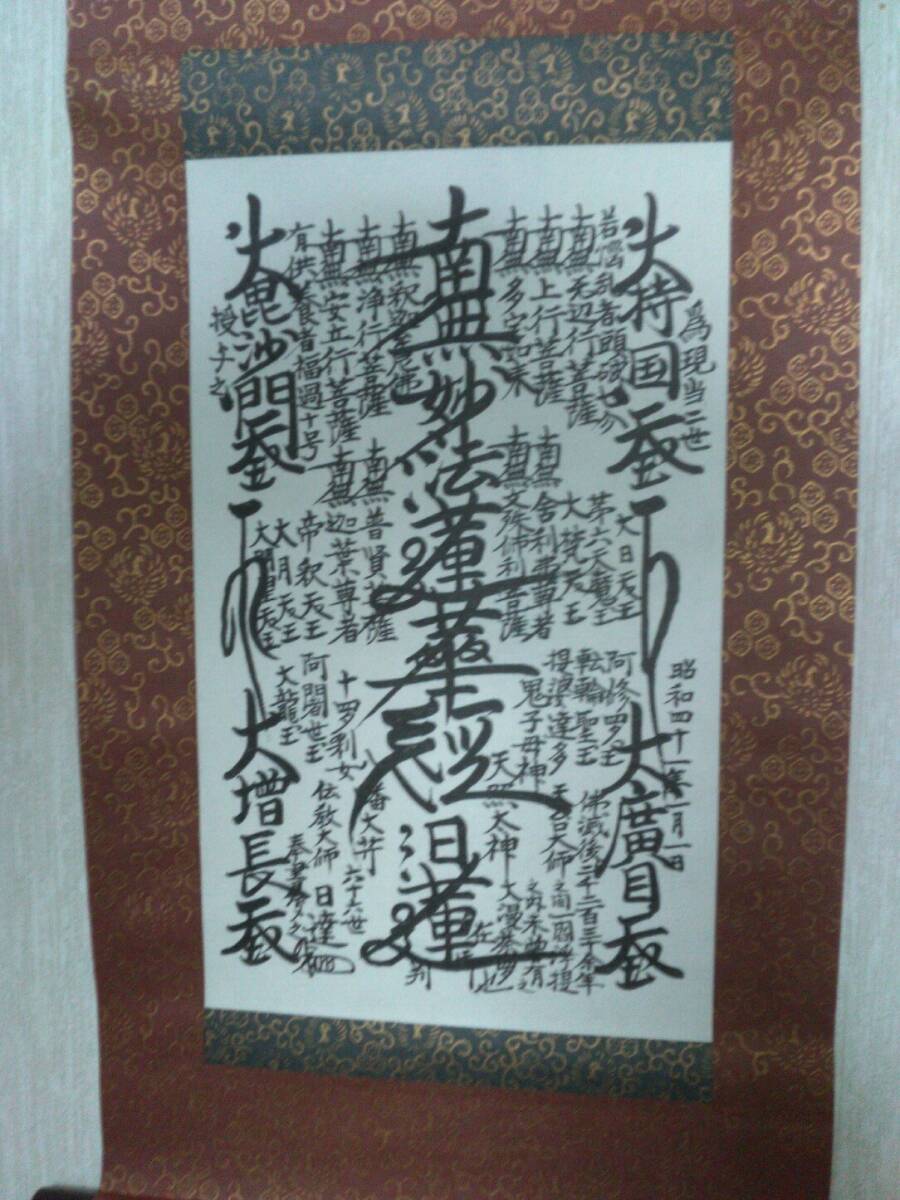 為現当二世
昭和四十一年一月一日
大持国天王
大廣目天王
若悩乱者頭破七分
南無无辺行菩薩
南無上行菩薩
南無多宝如来
南無妙法蓮華経
日蓮
在御判
南無釈迦牟尼仏
南無浄行菩薩
南無安立行菩薩
有供養者福過十号
大毘沙門天王
授与之
大日天王
第六天魔王
大梵天王
南無舎利弗尊者
南無文殊師利菩薩
南無普賢菩薩
南無迦葉尊者
帝釈天王
大月天王
大明星天王
阿修羅王
転輪聖王
提婆達多
鬼子母神
天照太神
十羅刹女
阿闍世王
大龍王
八幡大菩薩
佛滅後二千二百三十余年
之間一閻浮提
之内未曽有之
大漫荼羅也
天台大師
伝教大師
六十六世
日達
奉書写之
大増長天王